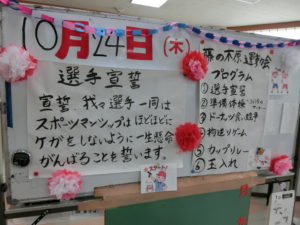 10月24日(木)
選手宣誓
宣誓 我々選手一同は
スポーツマンシップはほどほどに
ケガをしないように一生懸命
がんばることを誓います。
藤の木原運動会
プログラム
①選手宣誓
②準備体操
③ドーナッツ食い競争
④
⑤カップリレー
⑥玉入れ